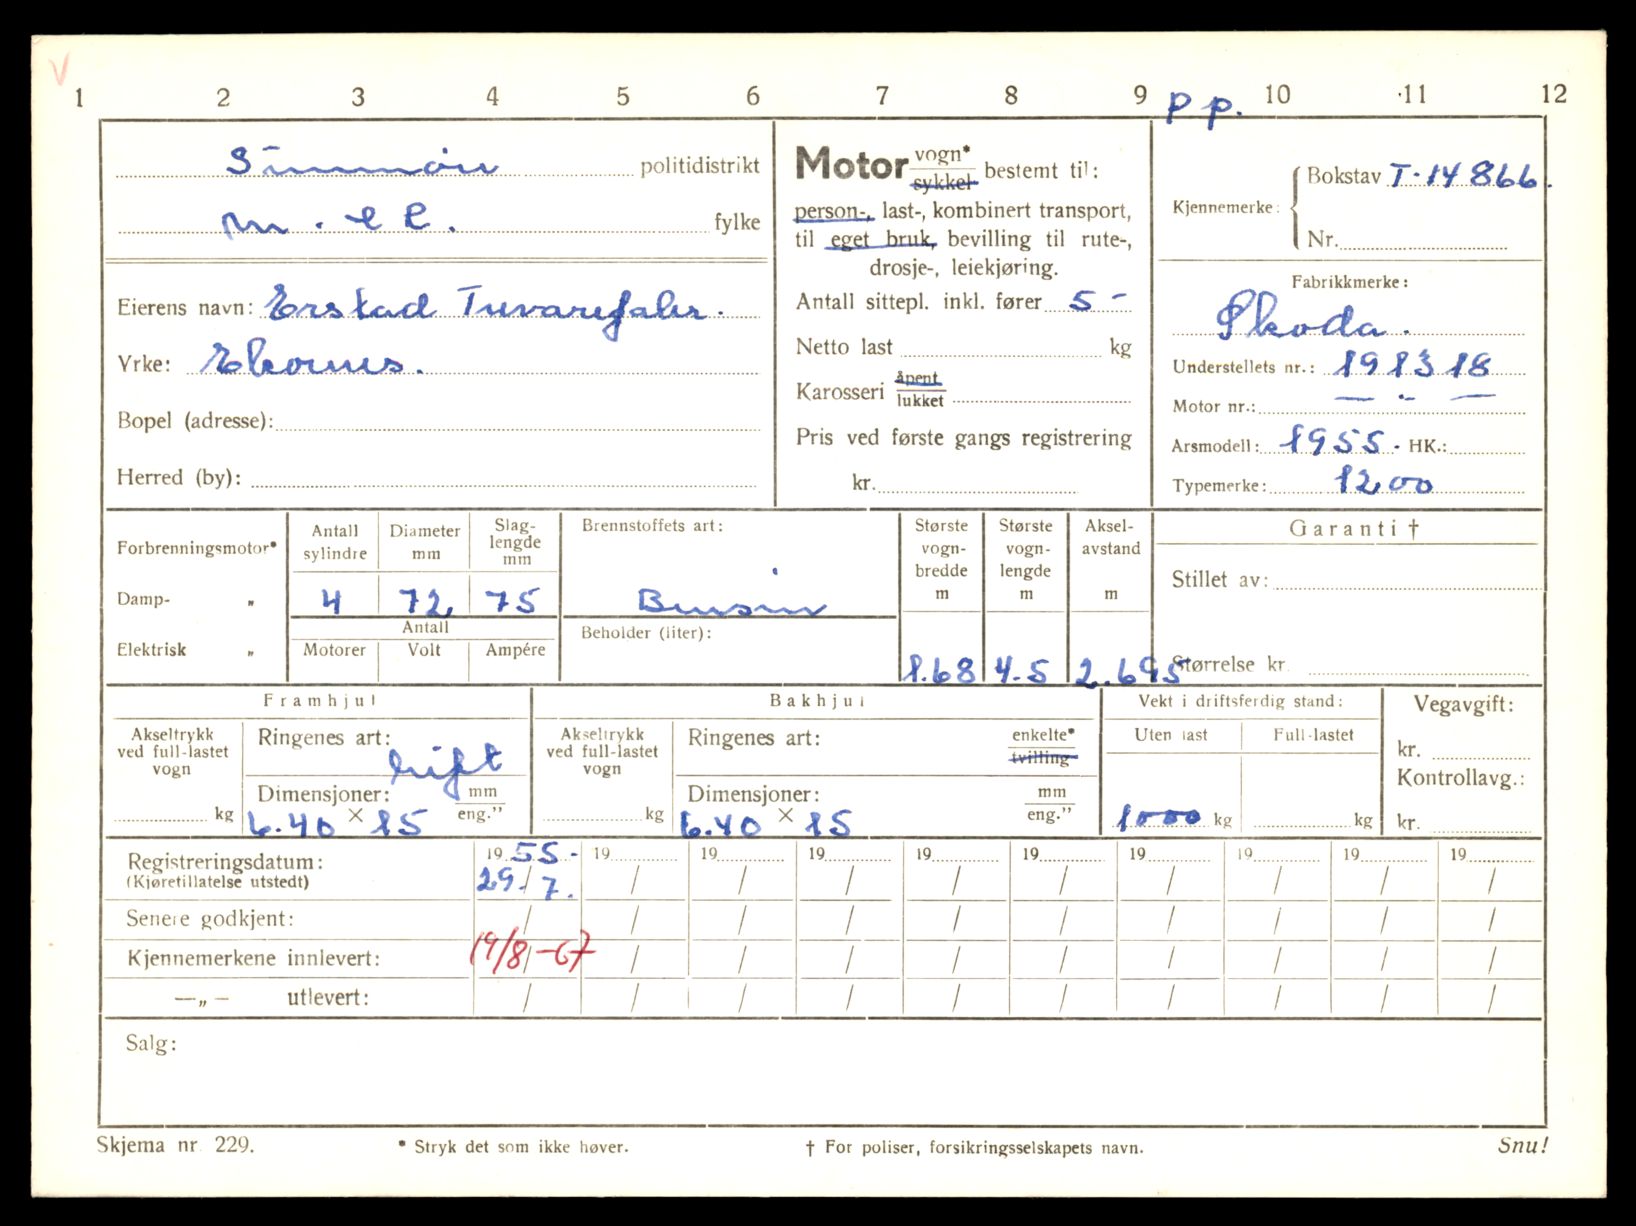 V
1 2 3 4 5 6 7 8 9 10 11 12
p p.
Sunnmøre politidistrikt
M. & R. fylke
Eierens navn: Erstad Tuvarefabr.
Yrke: Ekornes.
Bopel (adresse):
Herred (by):
Motor vogn* sykkel bestemt til:
person-, last-, kombinert transport,
til eget bruk, bevilling til rute-,
drosje-, leiekjøring.
Antall sittepl. inkl. fører 5 -
Netto last kg
Karosseri åpent lukket
Pris ved første gangs registrering
kr.
Kjennemerke: Bokstav T-14866.
Nr.
Fabrikkmerke:
Skoda.
Understellets nr.: 191318
Motor nr.: — " —
Arsmodell: 1955 - HK.:
Typemerke: 1200
Forbrenningsmotor*
Damp- „
Elektrisk „
Antall sylindre 4
Diameter mm 72
Slaglengde mm 75
Antall
Motorer Volt Ampére
Brennstoffets art:
Bensin
Beholder (liter):
Største vognbredde m 1.68
Største vognlengde m 4.5
Akselavstand m 2.695
Garanti †
Stillet av:
Størrelse kr.
Framhjul
Akseltrykk ved full-lastet vogn kg
Ringenes art: luft
Dimensjoner: mm eng."
6.40 × 15
Bakhjul
Akseltrykk ved full-lastet vogn kg
Ringenes art: enkelte* tvilling
Dimensjoner: mm eng."
6.40 × 15
Vekt i driftsferdig stand:
Uten last Full-lastet
1000 kg kg
Vegavgift:
kr.
Kontrollavg.:
kr.
Registreringsdatum: 1955- 19 19 19 19 19 19 19 19 19
(Kjøretillatelse utstedt) 29/7. / / / / / / / / /
Senere godkjent: / / / / / / / / / /
Kjennemerkene innlevert: 19/8-67 / / / / / / / / /
—„— utlevert: / / / / / / / / / /
Salg:
Skjema nr. 229. * Stryk det som ikke høver. † For poliser, forsikringsselskapets navn. Snu!